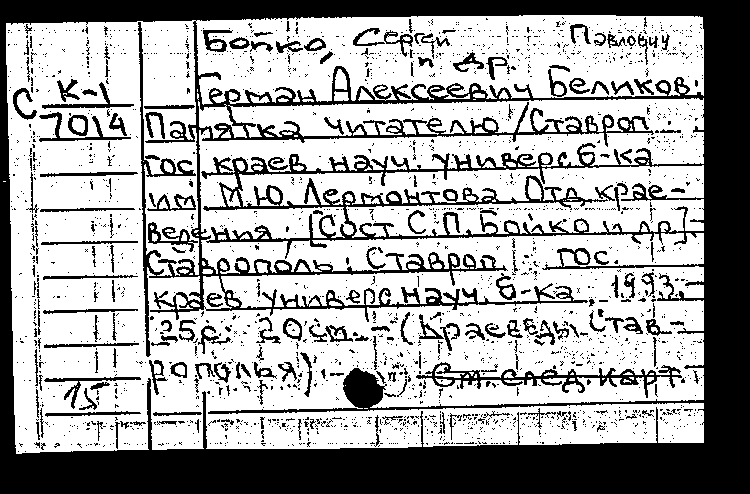 Бойко, Сергей Павлович
и др.
С К-1 Герман Алексеевич Беликов:
7014 Памятка читателю / Ставроп.
гос. краев. науч. универс. б-ка
им. М.Ю. Лермонтова. Отд. крае-
ведения; [Сост. С.П. Бойко и др.]-
Ставрополь: Ставроп. гос.
краев. универс. науч. б-ка, 1993.-
25с. 20см. - (Краеведы Став-
рополья). -
См. след. карт.
15